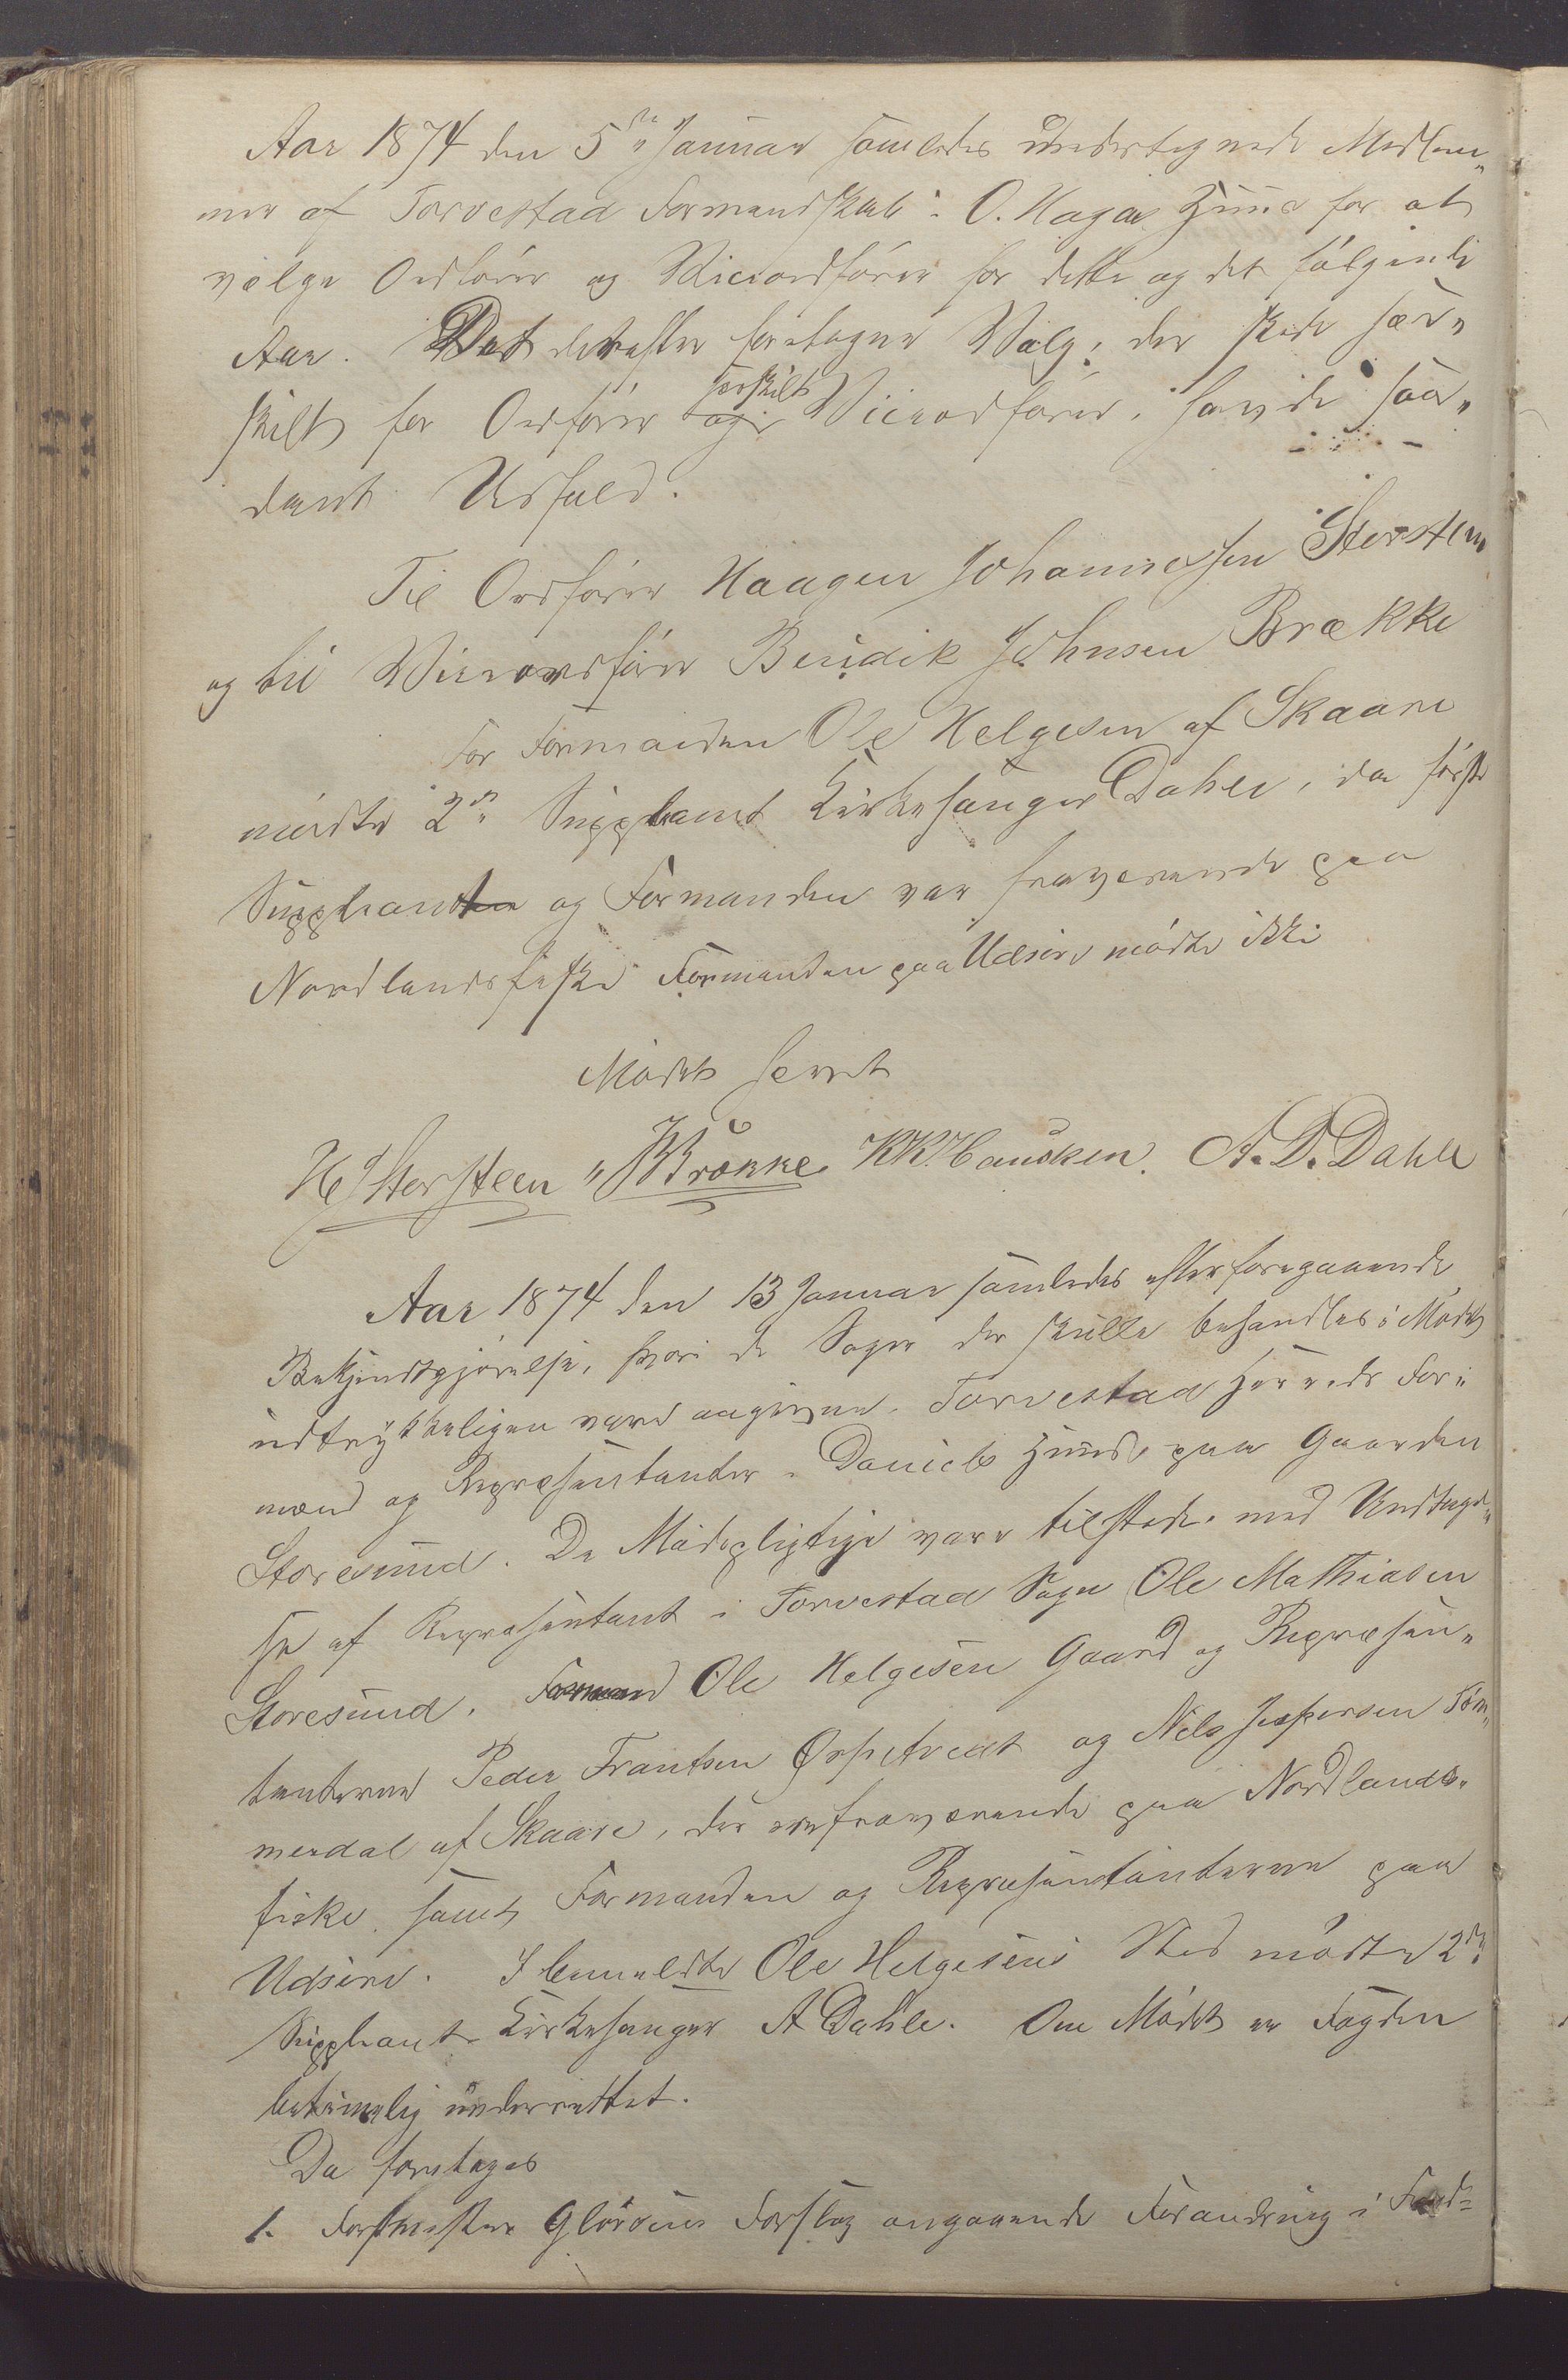 Aar 1874 den 5te Januar samledes undertegnede Medlem„
mer af Torvestad Formandskab i O. Hagas Huus for at
vælge Ordfører og Viceordfører for dette og det følgende
Aar. Det derefter foretagne Valg, der skede sær„
skilt for Ordfører og særskilt Viceordfører, havde saa„
dant Udfald.
Til Ordfører Haagen Johannessen Storsteen
og til Viceordfører Bendik Johnsen Brække
For Formanden Ole Helgesen af Skaare
mødte 2den Suppleant Kirkesanger Dahle, da første
Suppleant og Formanden var fraværende paa
Nordlandsfiske. Formanden paa Udsire mødte ikke
Mødet hævet
HJStorsteen BJBrække KKHausken. A. D. Dahle
Aar 1874 den 13 Januar samledes efter foregaaende
Bekjendtgjørelse, hvori de Sager der skulle behandles i Mødet
udtrykkeligen vare angivne, Torvestad Herreds For„
mænd og Repræsentanter i Daniels Huus paa Gaarden
Storesund. De Mødepligtige vare tilstede, med Undtagel„
se af Repræsentant i Torvestad Sogn Ole Mathiasen
Storesund, Formand Ole Helgesen Gaard og Repræsen„
tanterne Peder Frantsen Øspetvedt og Nels Jespersen Tøm„
merdal af Skaare, der ere fraværende paa Nordlands„
fiske, samt Formanden og Repræsentanterne paa
Udsire. I bemeldte Ole Helgesens Sted mødte 2den
Suppleant Kirkesanger A Dahle. Om Mødet er Fogden
betimelig underrettet.
Da foretoges
1. Forstmester Gløersens Forslag angaaende Forandring i